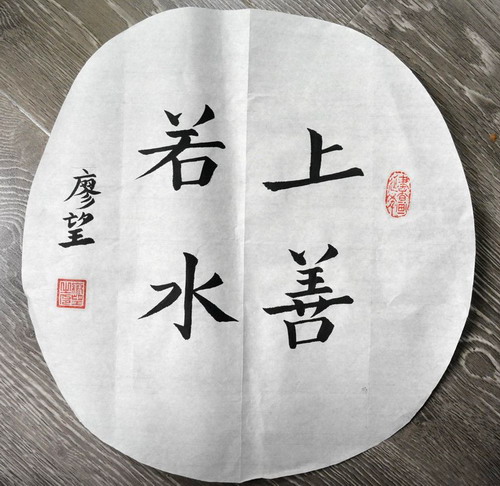 上善
若水
廖望